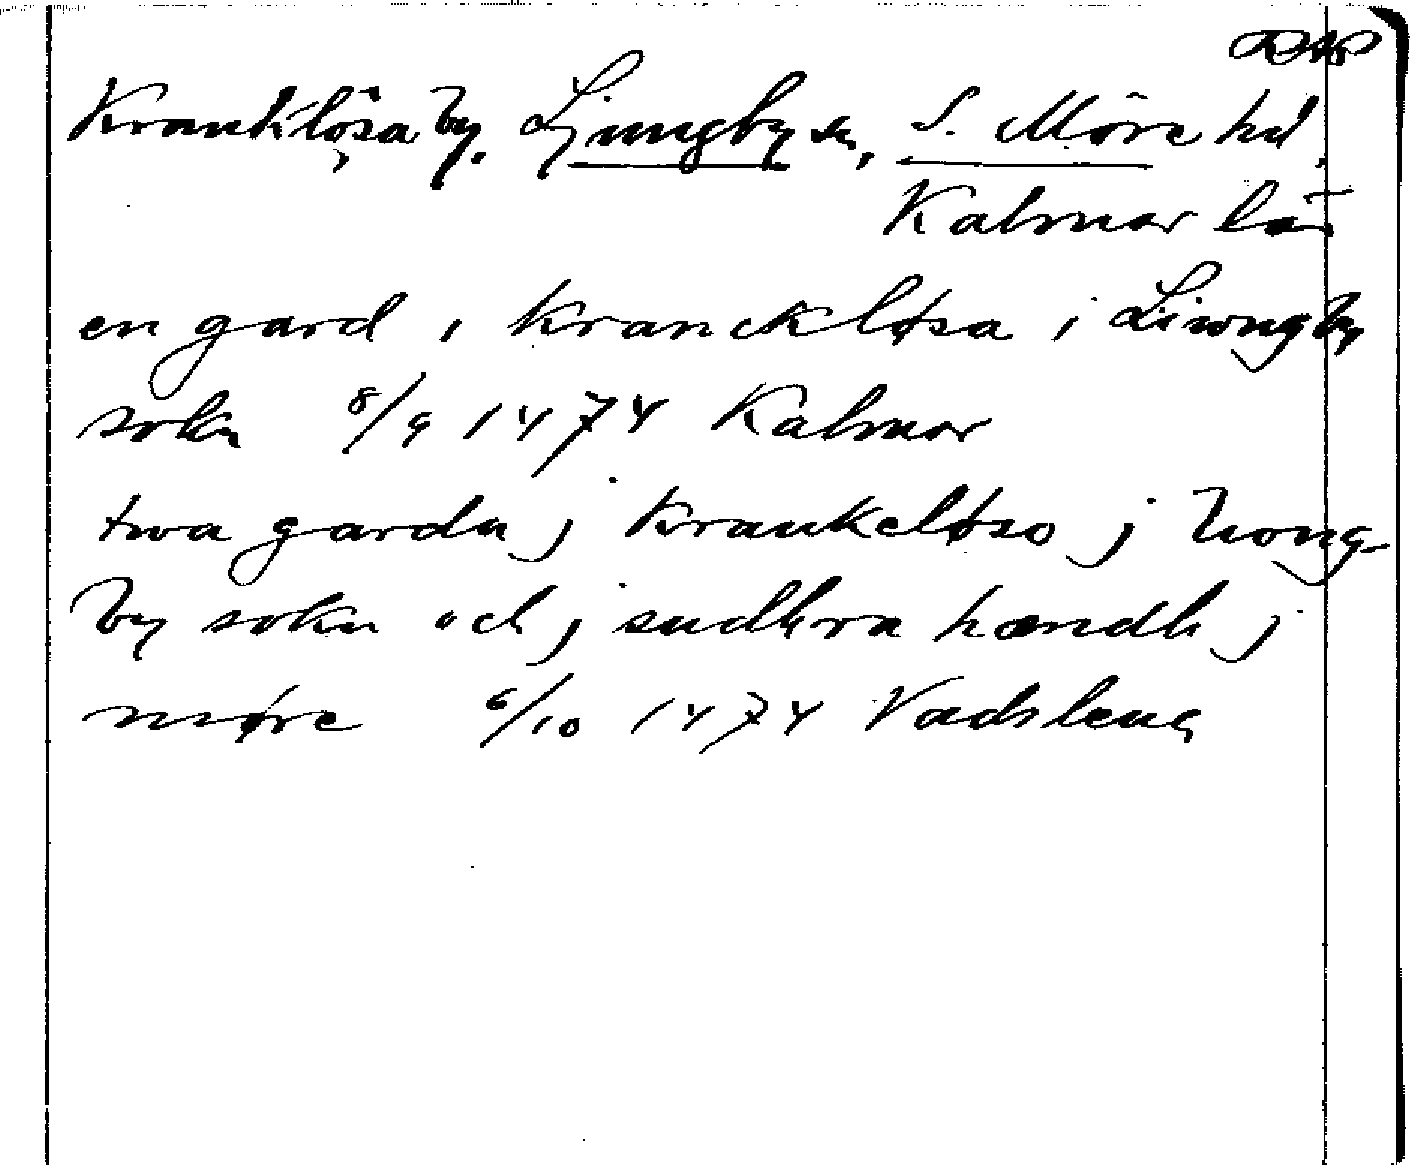 Kranklösa by, Ljungby sn, S. Möre hd,
Kalmar län
en gard i kranckløsa i Liwngby
sokn 8/9 1474 Kalmar
twa garda j krankeløso j liong-
by sokn och j sudhra hændh j
møre 6/10 1474 Vadstena